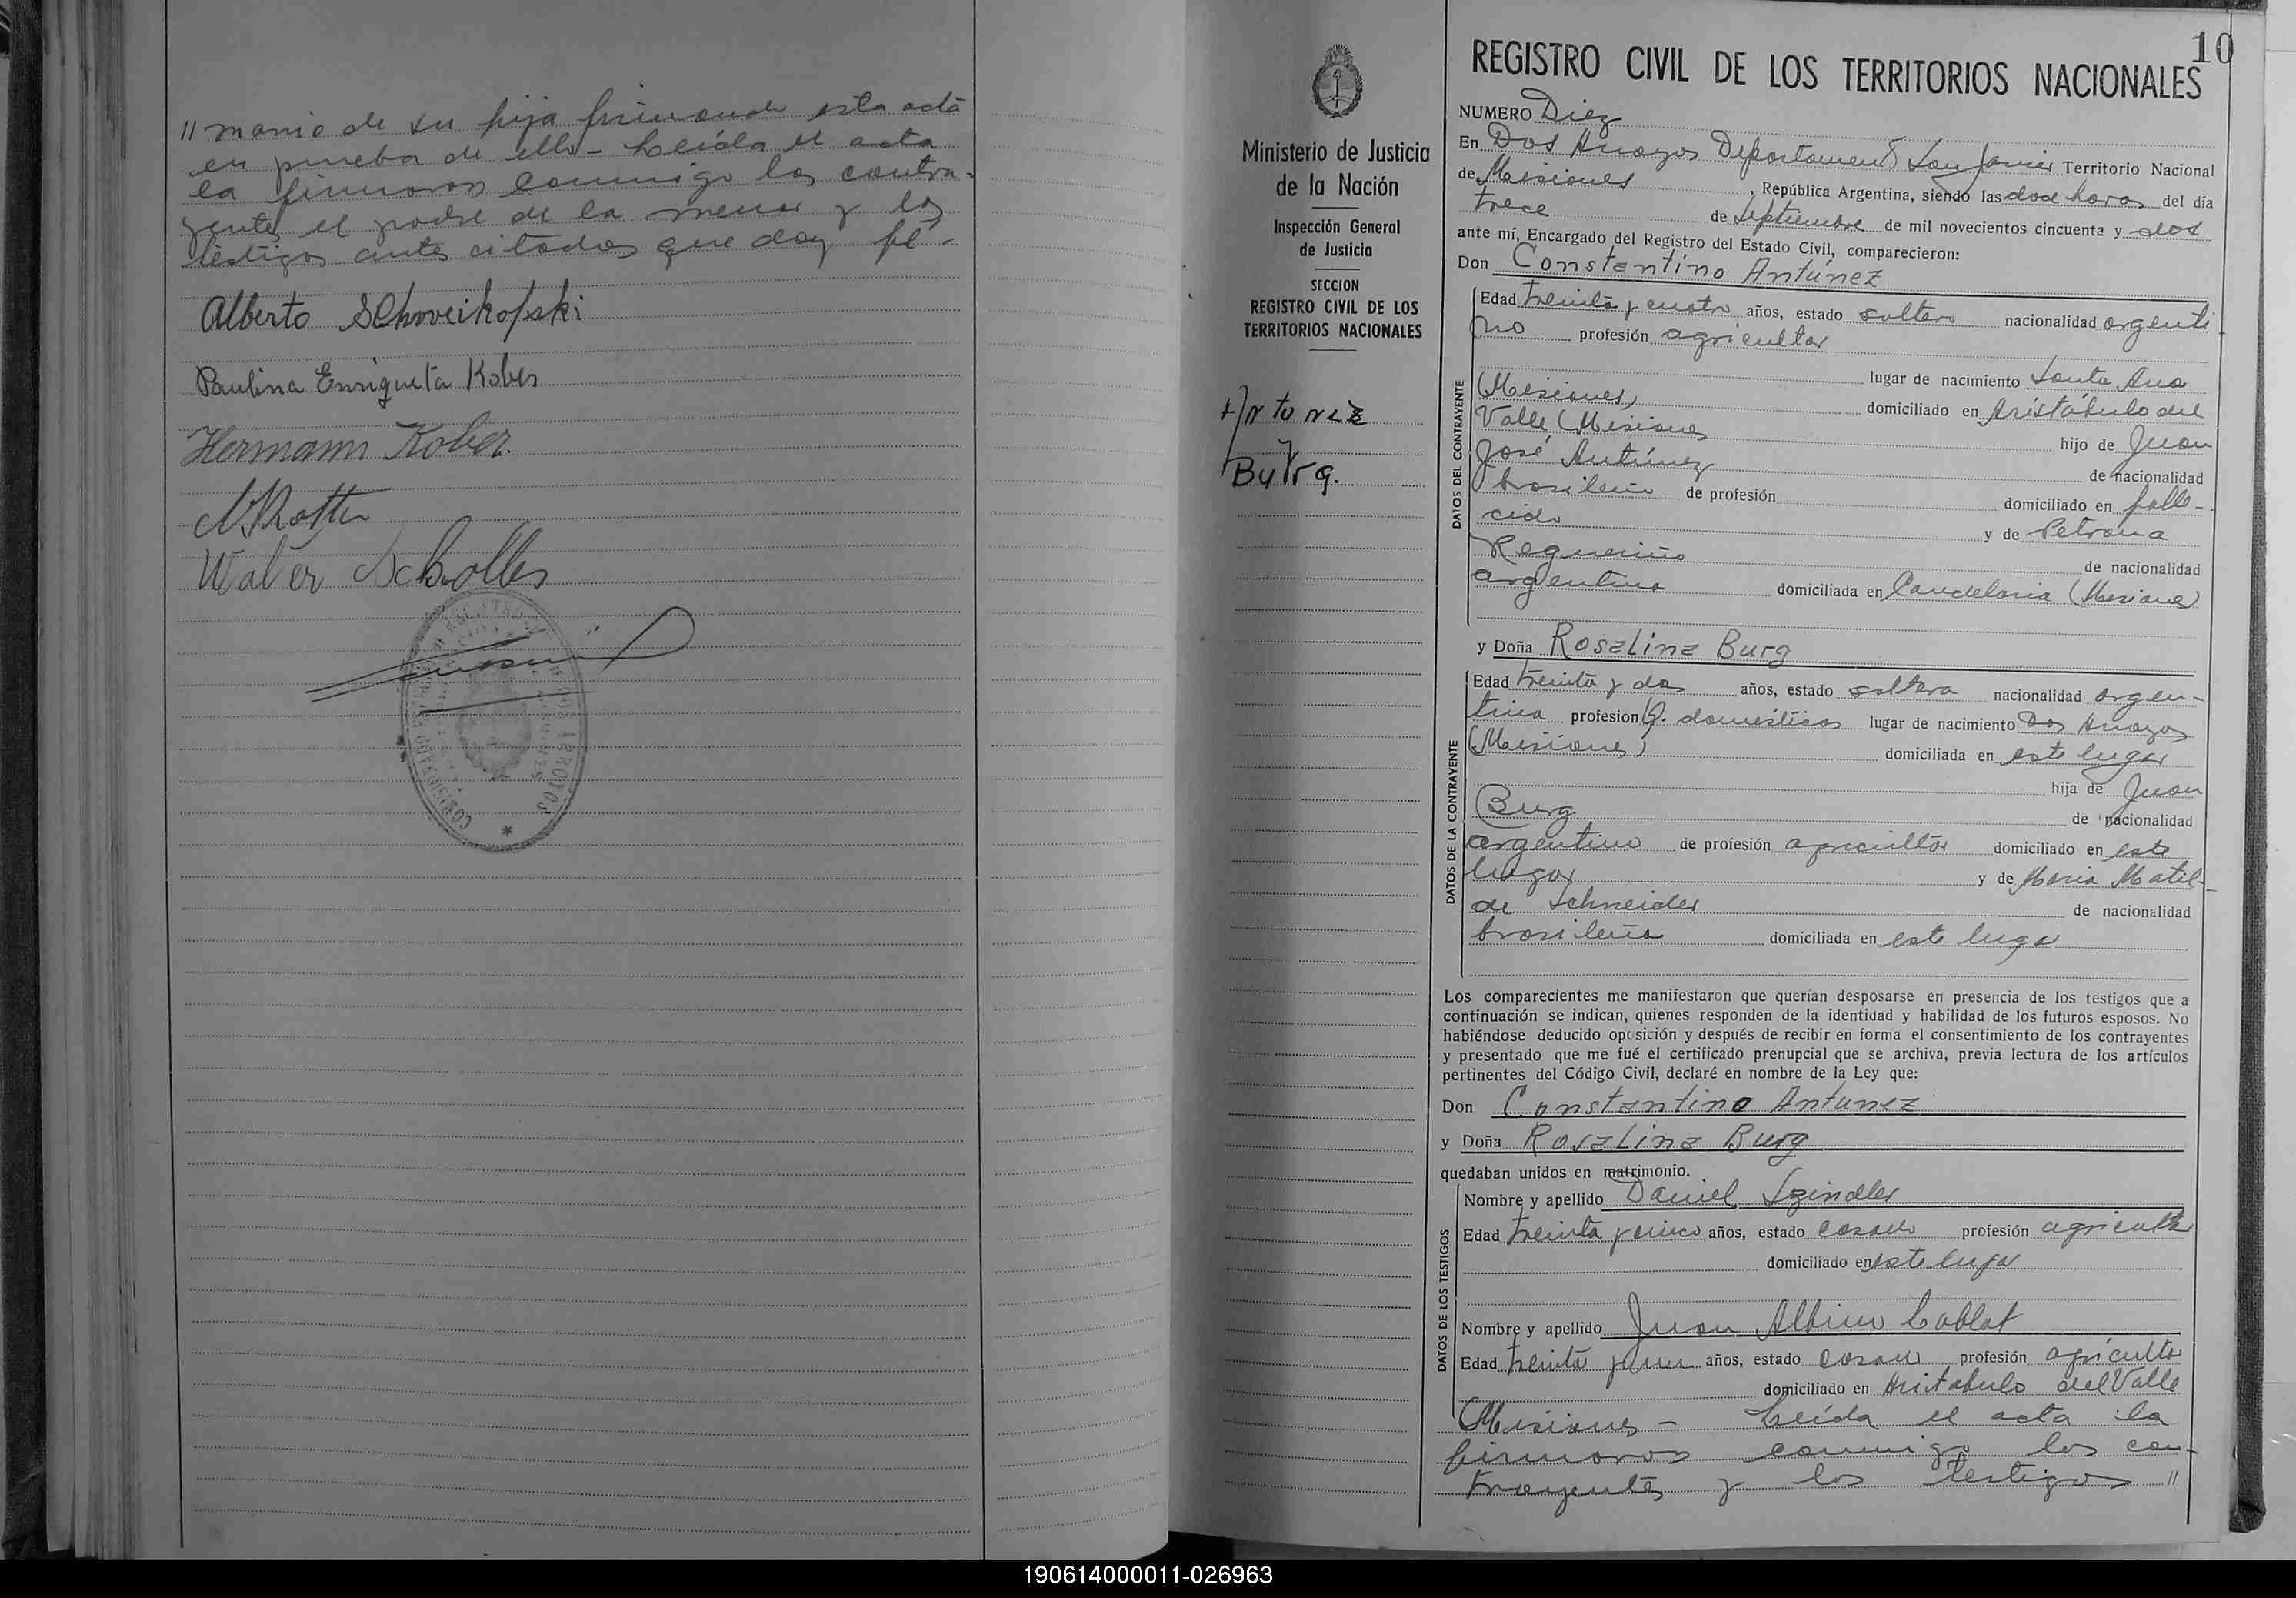 // monio de su hija firmando esta acta
en prueba de ello - Leída el acta
la firmaron conmigo los contra-
yentes el padre de la menor y los
testigos antes citados que doy fé.-
Alberto Schoveikofski
Paulina Enriqueta Kober
Hermann Kober.
Walter Scholles
10
Ministerio de Justicia
de la Nación
Inspección General
de Justicia
SECCION
REGISTRO CIVIL DE LOS
TERRITORIOS NACIONALES
Antunez
y
Burg.
REGISTRO CIVIL DE LOS TERRITORIOS NACIONALES
NUMERO Diez
En Dos Arroyos Departamento San Javier Territorio Nacional
de Misiones, República Argentina, siendo las doce horas del día
trece de Septiembre de mil novecientos cincuenta y dos
ante mí, Encargado del Registro del Estado Civil, comparecieron:
Don Constantino Antúnez
DATOS DEL CONTRAYENTE
Edad treinta y cuatro años, estado soltero nacionalidad argenti
no profesión agricultor
lugar de nacimiento Santa Ana
(Misiones) domiciliado en Aristóbulo del
Valle (Misiones hijo de Juan
José Antúnez de nacionalidad
brasileño de profesión domiciliado en falle-
cido y de Petrona
Requeriño de nacionalidad
argentina domiciliada en Candelaria (Misiones)
y Doña Rosalina Burg
DATOS DE LA CONTRAYENTE
Edad treinta y dos años, estado soltera nacionalidad argen-
tina profesion Q. domésticos lugar de nacimiento Dos Arroyos
(Misiones) domiciliada en este lugar
hija de Juan
Burg de nacionalidad
argentino de profesión agricultor domiciliado en este
lugar y de María Matil-
de Schneider de nacionalidad
brasileña domiciliada en este lugar
Los comparecientes me manifestaron que querían desposarse en presencia de los testigos que a
continuación se indican, quienes responden de la identidad y habilidad de los futuros esposos. No
habiéndose deducido oposición y después de recibir en forma el consentimiento de los contrayentes
y presentado que me fué el certificado prenupcial que se archiva, previa lectura de los artículos
pertinentes del Código Civil, declaré en nombre de la Ley que:
Don Constantino Antunez
y Doña Rosalina Burg
quedaban unidos en matrimonio.
DATOS DE LOS TESTIGOS
Nombre y apellido Daniel Szindler
Edad treinta y cinco años, estado casado profesión agricultor
domiciliado en este lugar
Nombre y apellido Juan Albino Cablat
Edad treinta y un años, estado casado profesión agricultor
domiciliado en Aristobulo del Valle
(Misiones - Leída el acta la
firmaron conmigo los con-
trayentes y los testigos //
190614000011-026963